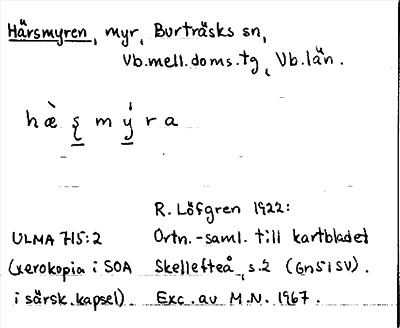 Härsmyren, myr, Burträsks sn,
Vb.mell.doms.tg, Vb.län.
hæ̀ ş m ý r a
R. Löfgren 1922:
ULMA 715:2 Ortn.-saml. till kartbladet
(xerokopia i SOA Skellefteå, s.2 (Gn51SV).
i särsk.kapsel). Exc. av M.N. 1967.